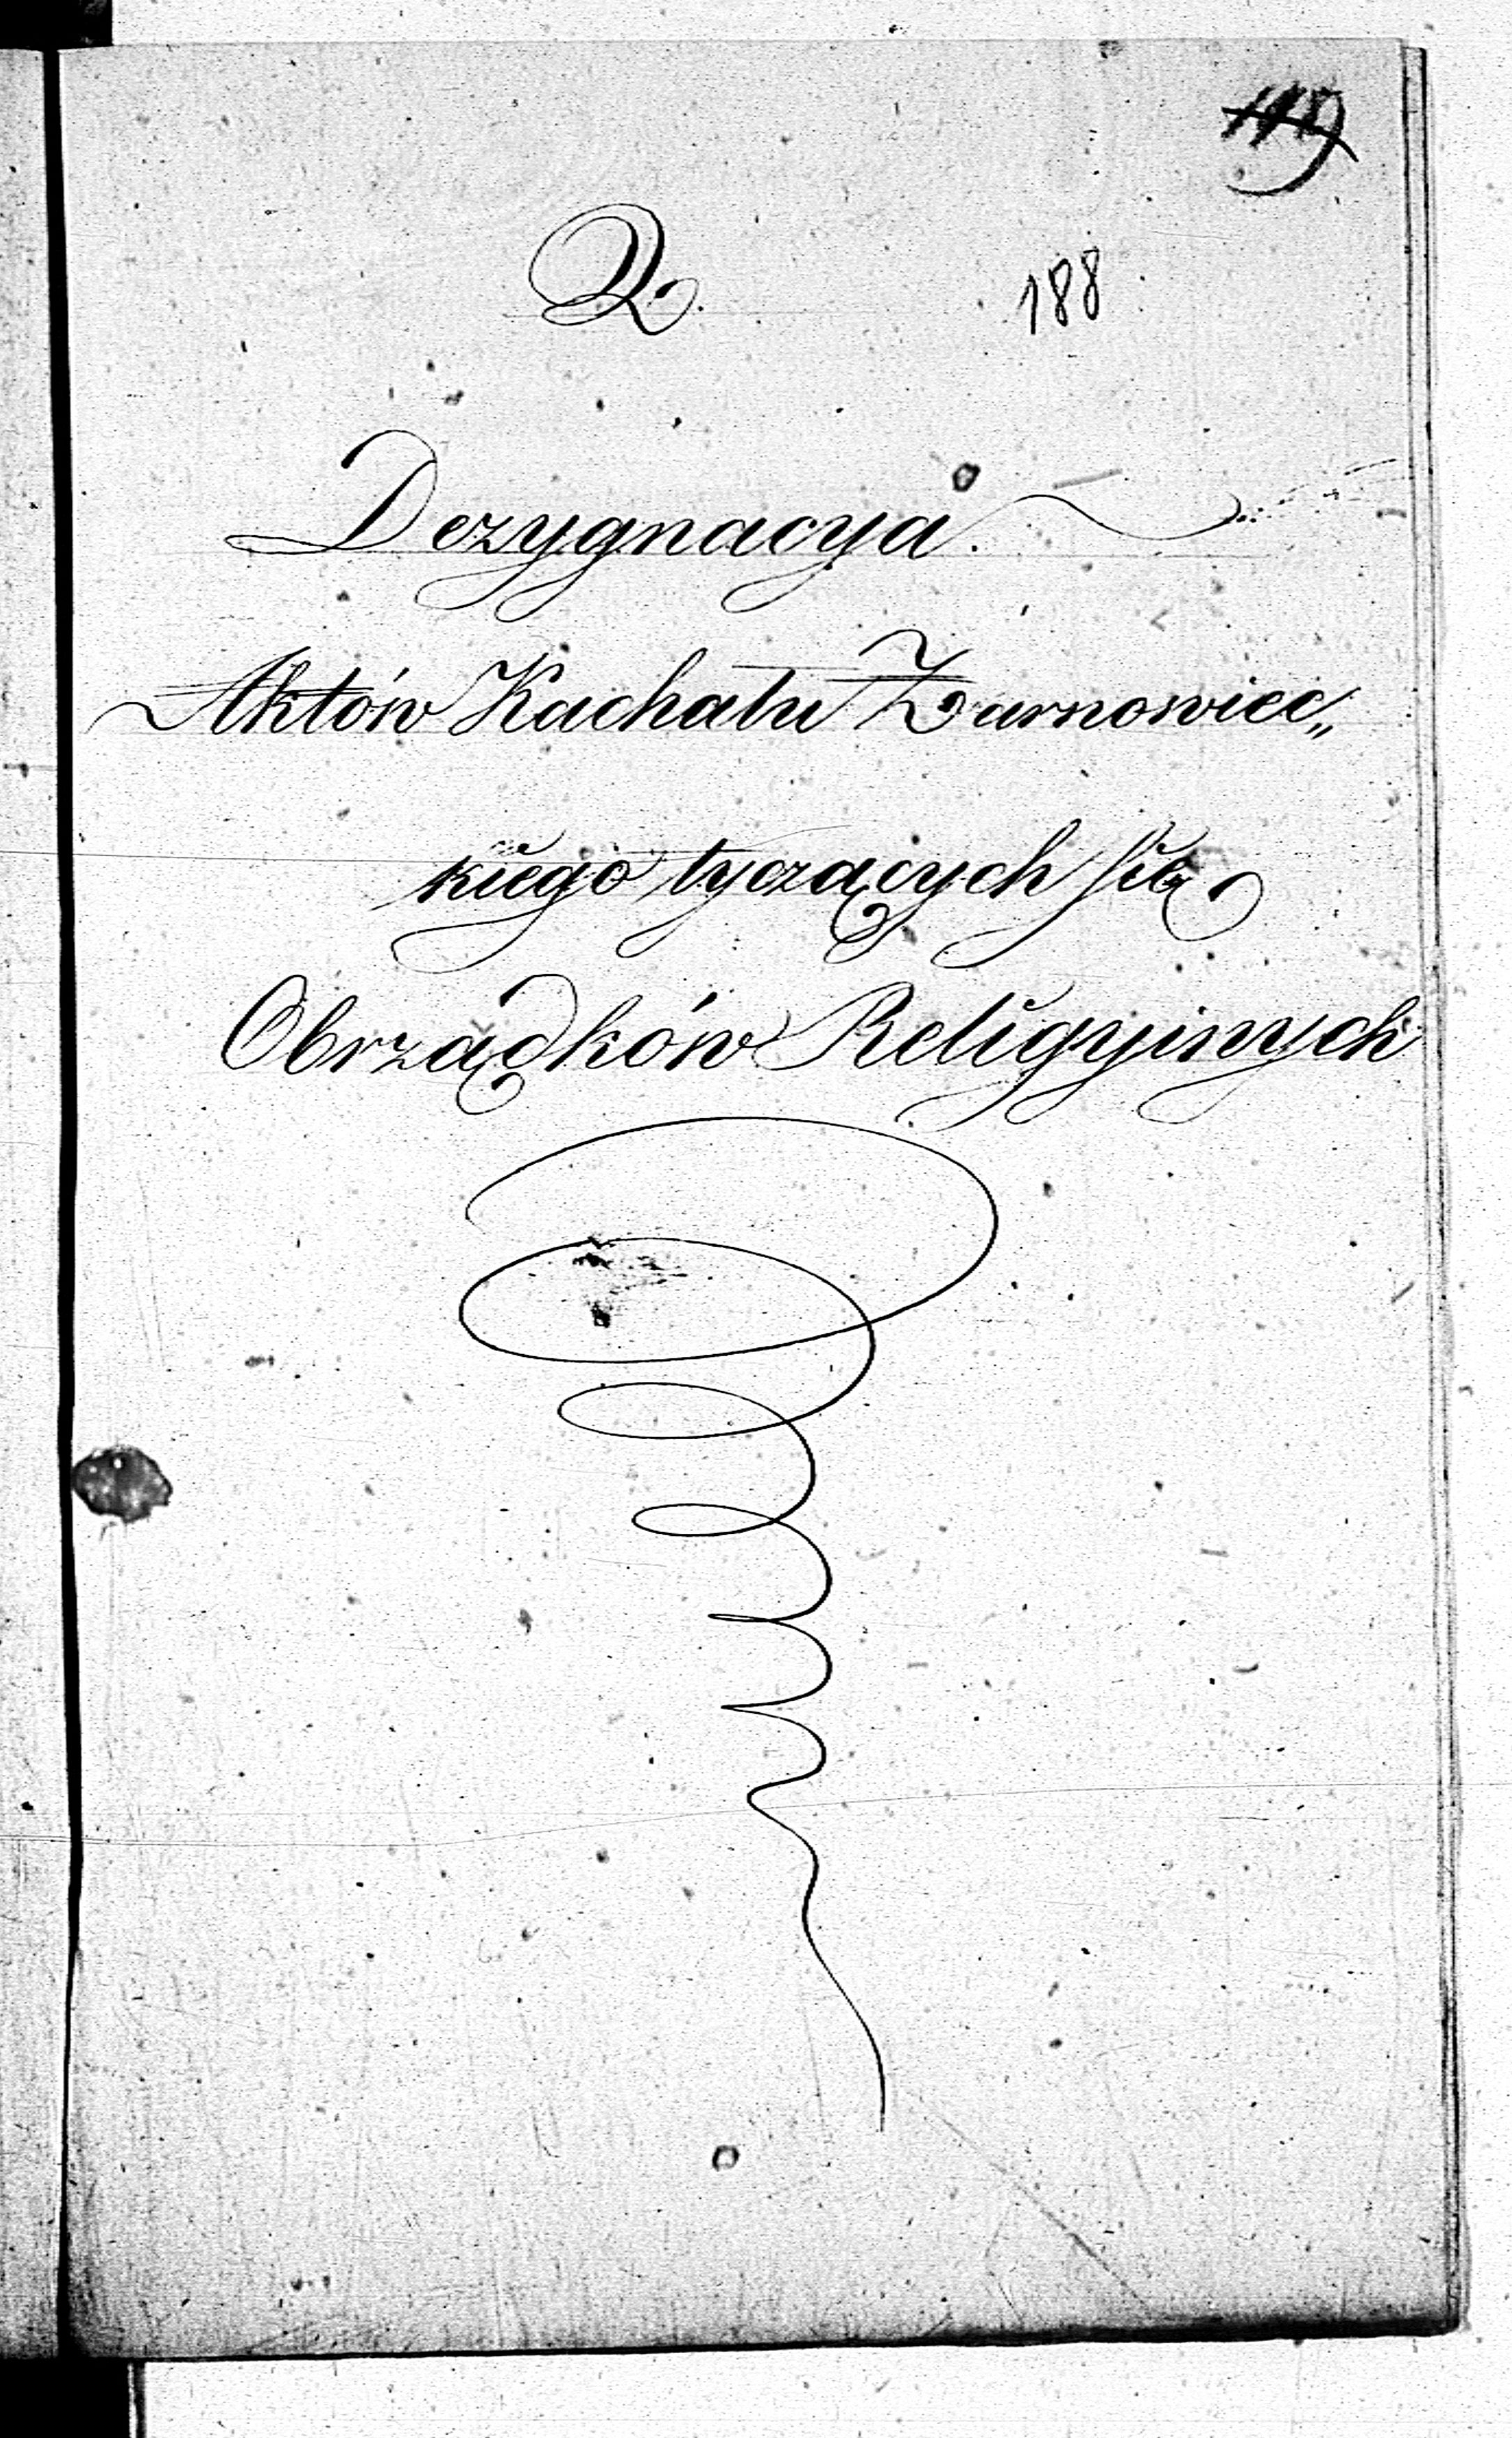 119
188
Dezygnacya.
Aktów Kachału Żarnowiec„
kiego tyczących się
Obrządków Religyinych